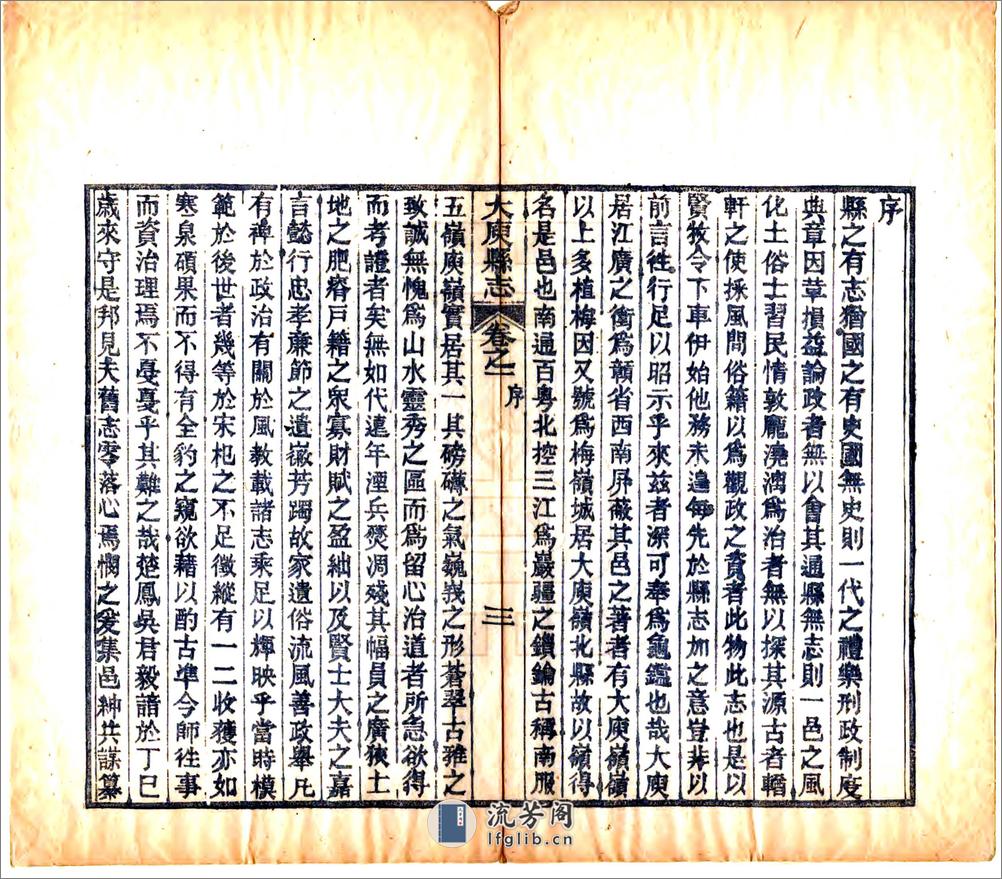 序
縣之有志猶國之有史國無史則一代之禮樂刑政制度
典章因革損益論政者無以會其通縣無志則一邑之風
化土俗士習民情敦龐澆漓為治者無以探其源古者輶
軒之使採風問俗籍以為觀政之資者此物此志也是以
賢牧令下車伊始他務未遑每先於縣志加之意豈非以
前言徃行足以昭示乎來茲者深可奉為龜鑑也哉大庾
居江廣之衝為贛省西南屏蔽其邑之著者有大庾嶺嶺
以上多植梅因又號為梅嶺城居大庾嶺北縣故以嶺得
名是邑也南通百粤北控三江為巖疆之鎖鑰古稱南服
大庾縣志 卷之一 序 三
五嶺庾嶺實居其一其磅礴之氣巍峩之形蒼翠古雅之
致誠無愧為山水靈秀之區而為留心治道者所急欲得
而考證者矣無如代遠年湮兵燹凋殘其幅員之廣狹土
地之肥瘠戸籍之衆寡財賦之盈絀以及賢士大夫之嘉
言懿行忠孝亷節之遺薇芳躅故家遺俗流風善政舉凡
有裨於政治有關於風教載諸志乘足以輝映乎當時模
範於後世者幾等於宋杞之不足徵縱有一二收獲亦如
寒泉碩果而不得有全豹之窺欲藉以酌古準今師徃事
而資治理焉不戞戛乎其難之哉楚鳳吳君毅諳於丁巳
歲來守是邦見夫舊志零落心焉憫之爰集邑紳共謀纂
流芳阁
lfglib.cn